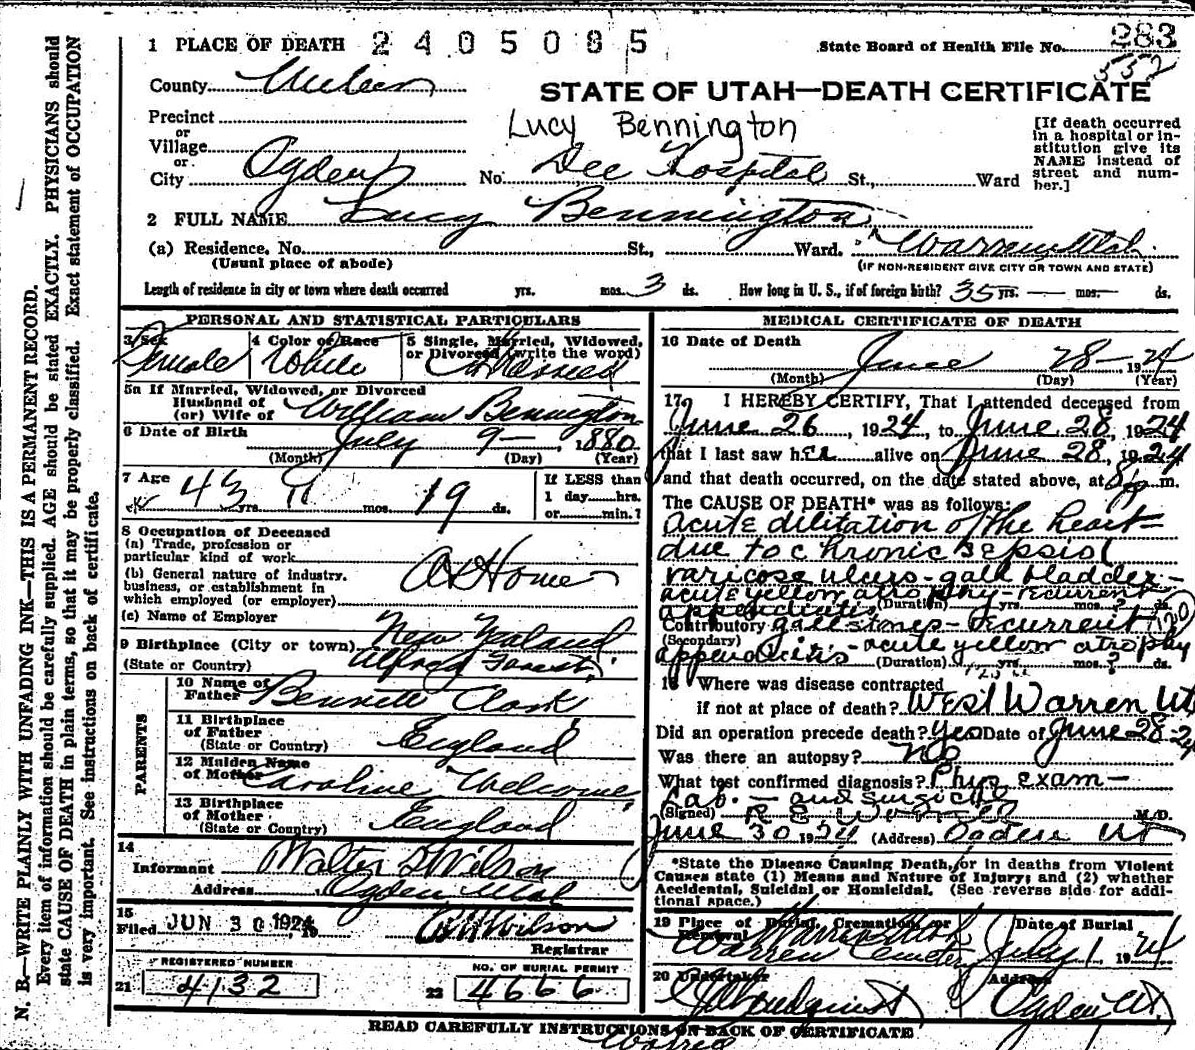 283
1 PLACE OF DEATH 2405085 State Board of Health File No.
552
County Weber
STATE OF UTAH—DEATH CERTIFICATE
Precinct
or
Village
or
City Ogden No. Dee Hospital St., Ward
Lucy Bennington
[If death occurred
in a hospital or in-
stitution give its
NAME instead of
street and num-
ber.]
2 FULL NAME Lucy Bennington
(a) Residence, No. St., Ward. Warren, Utah.
(Usual place of abode) (IF NON-RESIDENT GIVE CITY OR TOWN AND STATE)
Length of residence in city or town where death occurred yrs. mos. 3 ds. How long in U. S., if of foreign birth? 35 yrs. — mos. — ds.
PERSONAL AND STATISTICAL PARTICULARS
3 Sex 4 Color or Race 5 Single, Married, Widowed,
or Divorced (write the word)
Female White Married
5a If Married, Widowed, or Divorced
Husband of
(or) Wife of William Bennington
6 Date of Birth July 9— 1880
(Month) (Day) (Year)
7 Age 43 yrs. 11 mos. 19 ds.
If LESS than
1 day hrs.
or min.?
8 Occupation of Deceased
(a) Trade, profession or
particular kind of work At Home
(b) General nature of industry,
business, or establishment in
which employed (or employer)
(c) Name of Employer
New Zealand
9 Birthplace (City or town)
(State or Country) Alfred Forest
PARENTS
10 Name of
Father Bennett Clark
11 Birthplace
of Father England
(State or Country)
12 Maiden Name
of Mother Caroline Welcome
13 Birthplace
of Mother England
(State or Country)
14
Informant Walter D Wilson
Address Ogden Utah
15
Filed JUN 30 1924, 19 Wilson
Registrar
REGISTERED NUMBER NO. OF BURIAL PERMIT
21 4132 22 4666
MEDICAL CERTIFICATE OF DEATH
16 Date of Death June 28— 1924
(Month) (Day) (Year)
17 I HEREBY CERTIFY, That I attended deceased from
June 26, 1924, to June 28, 1924
that I last saw her alive on June 28, 1924
and that death occurred, on the date stated above, at 8 m.
The CAUSE OF DEATH* was as follows:
Acute dilitation of the heart—
due to chronic sepsis
varicose ulcers- gall bladder—
acute yellow atrophy- recurrent
appendicitis (Duration) yrs. mos.? ds.
Contributory gallstones- recurrent 120
(Secondary)
appendicitis- acute yellow atrophy
(Duration) yrs. mos.? ds.
18 Where was disease contracted
if not at place of death? West Warren Ut
Did an operation precede death? Yes Date of June 28-24
Was there an autopsy? No
What test confirmed diagnosis? Phys Exam—
Lab. — and surgical
(Signed) R E M.D.
June 30 1924 (Address) Ogden Ut
*State the Disease Causing Death, or in deaths from Violent
Causes state (1) Means and Nature of Injury; and (2) whether
Accidental, Suicidal or Homicidal. (See reverse side for addi-
tional space.)
19 Place of Burial, Cremation or Date of Burial
Removal Warren Utah
Warren Cemetery July 1 1924
20 Undertaker Address
Ogden Ut.
READ CAREFULLY INSTRUCTIONS ON BACK OF CERTIFICATE
N. B.—WRITE PLAINLY WITH UNFADING INK—THIS IS A PERMANENT RECORD.
Every item of information should be carefully supplied. AGE should be stated EXACTLY. PHYSICIANS should
state CAUSE OF DEATH in plain terms, so that it may be properly classified. Exact statement of OCCUPATION
is very important. See instructions on back of certificate.